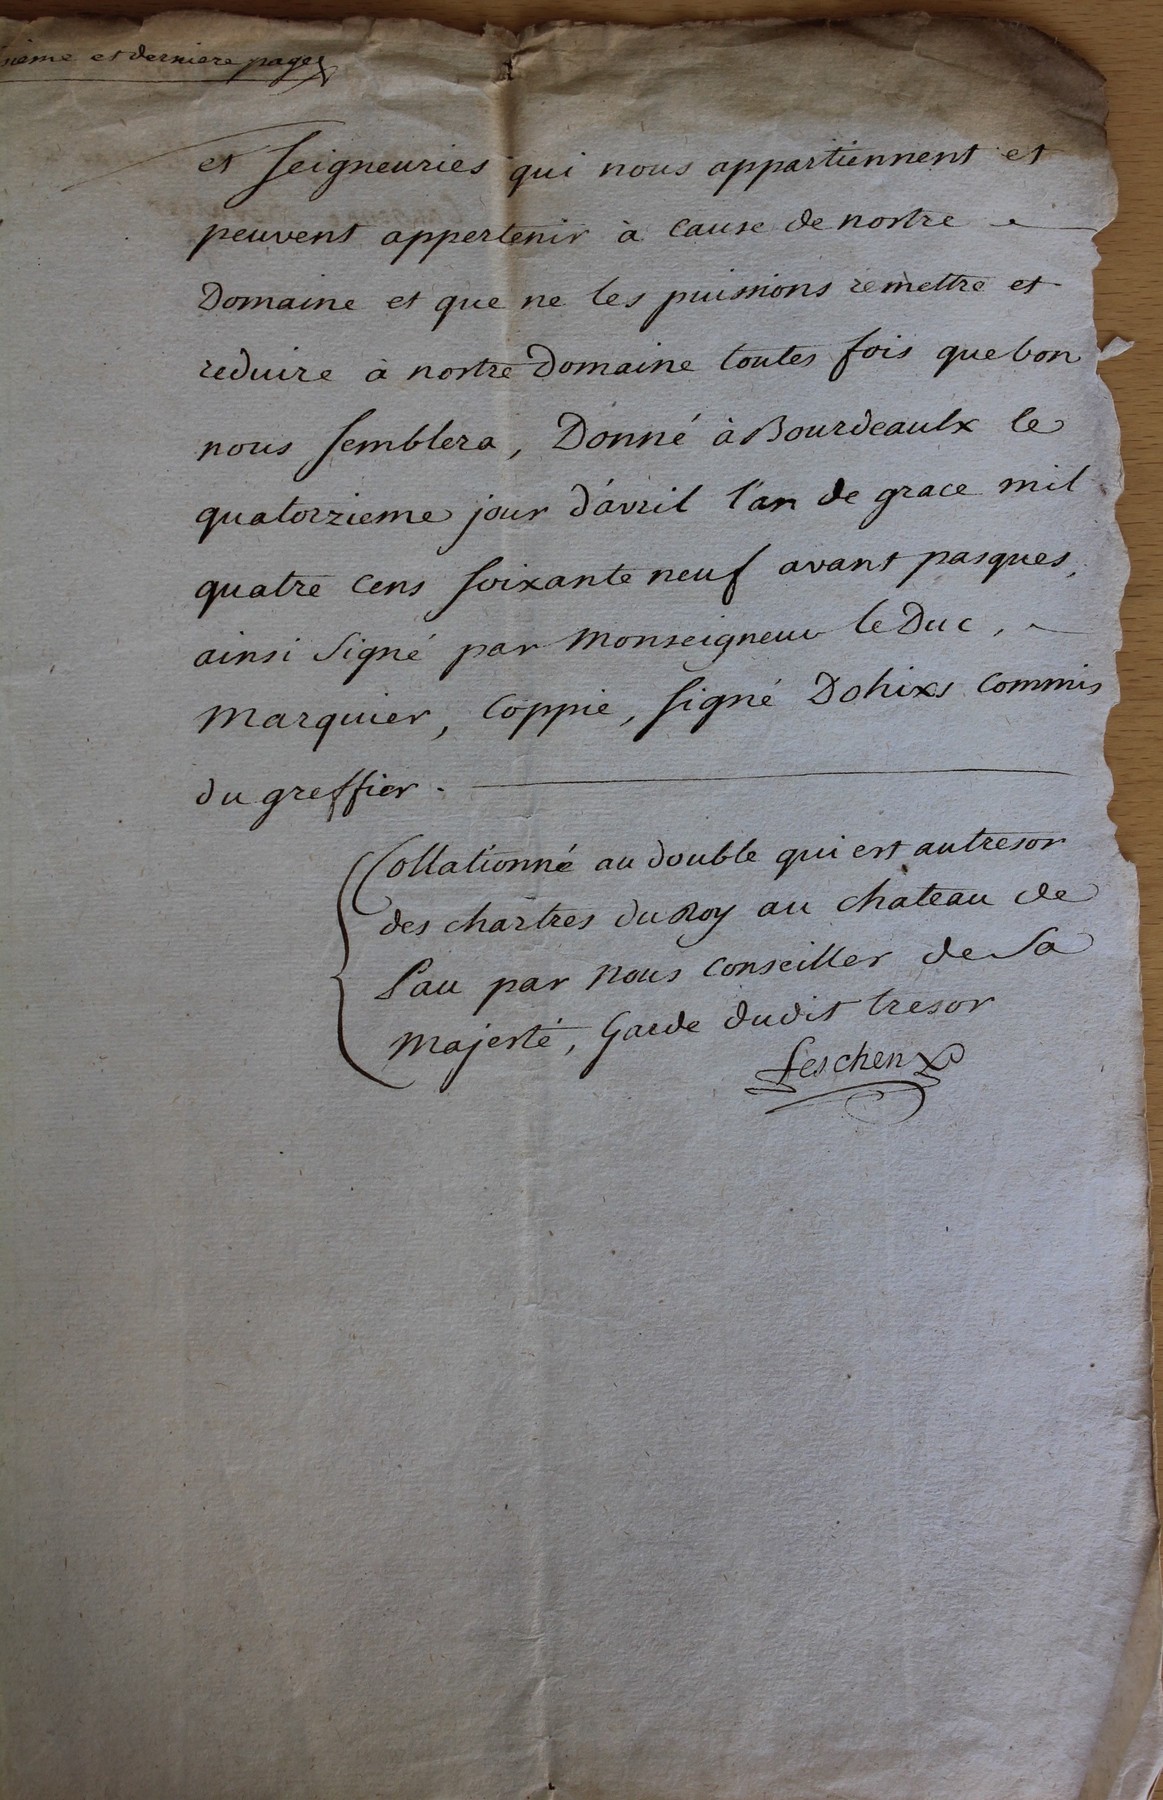 et derniere page
et seigneuries qui nous appartiennent et
peuvent appertenir à cause de nostre
Domaine et que ne les puissions remettre et
reduire à nostre Domaine toutes fois que bon
nous semblera, Donné à Bourdeaulx le
quatorzieme jour d'avril l'an de grace mil
quatre cens soixante neuf avant pasques,
ainsi signé par Monseigneur le Duc,
Marquier, Coppie, signé Dohixs Commis
du greffier.
Collationné au double qui est au tresor
des chartres du Roy au chateau de
Pau par nous conseiller de Sa
Majesté, Garde dudit tresor